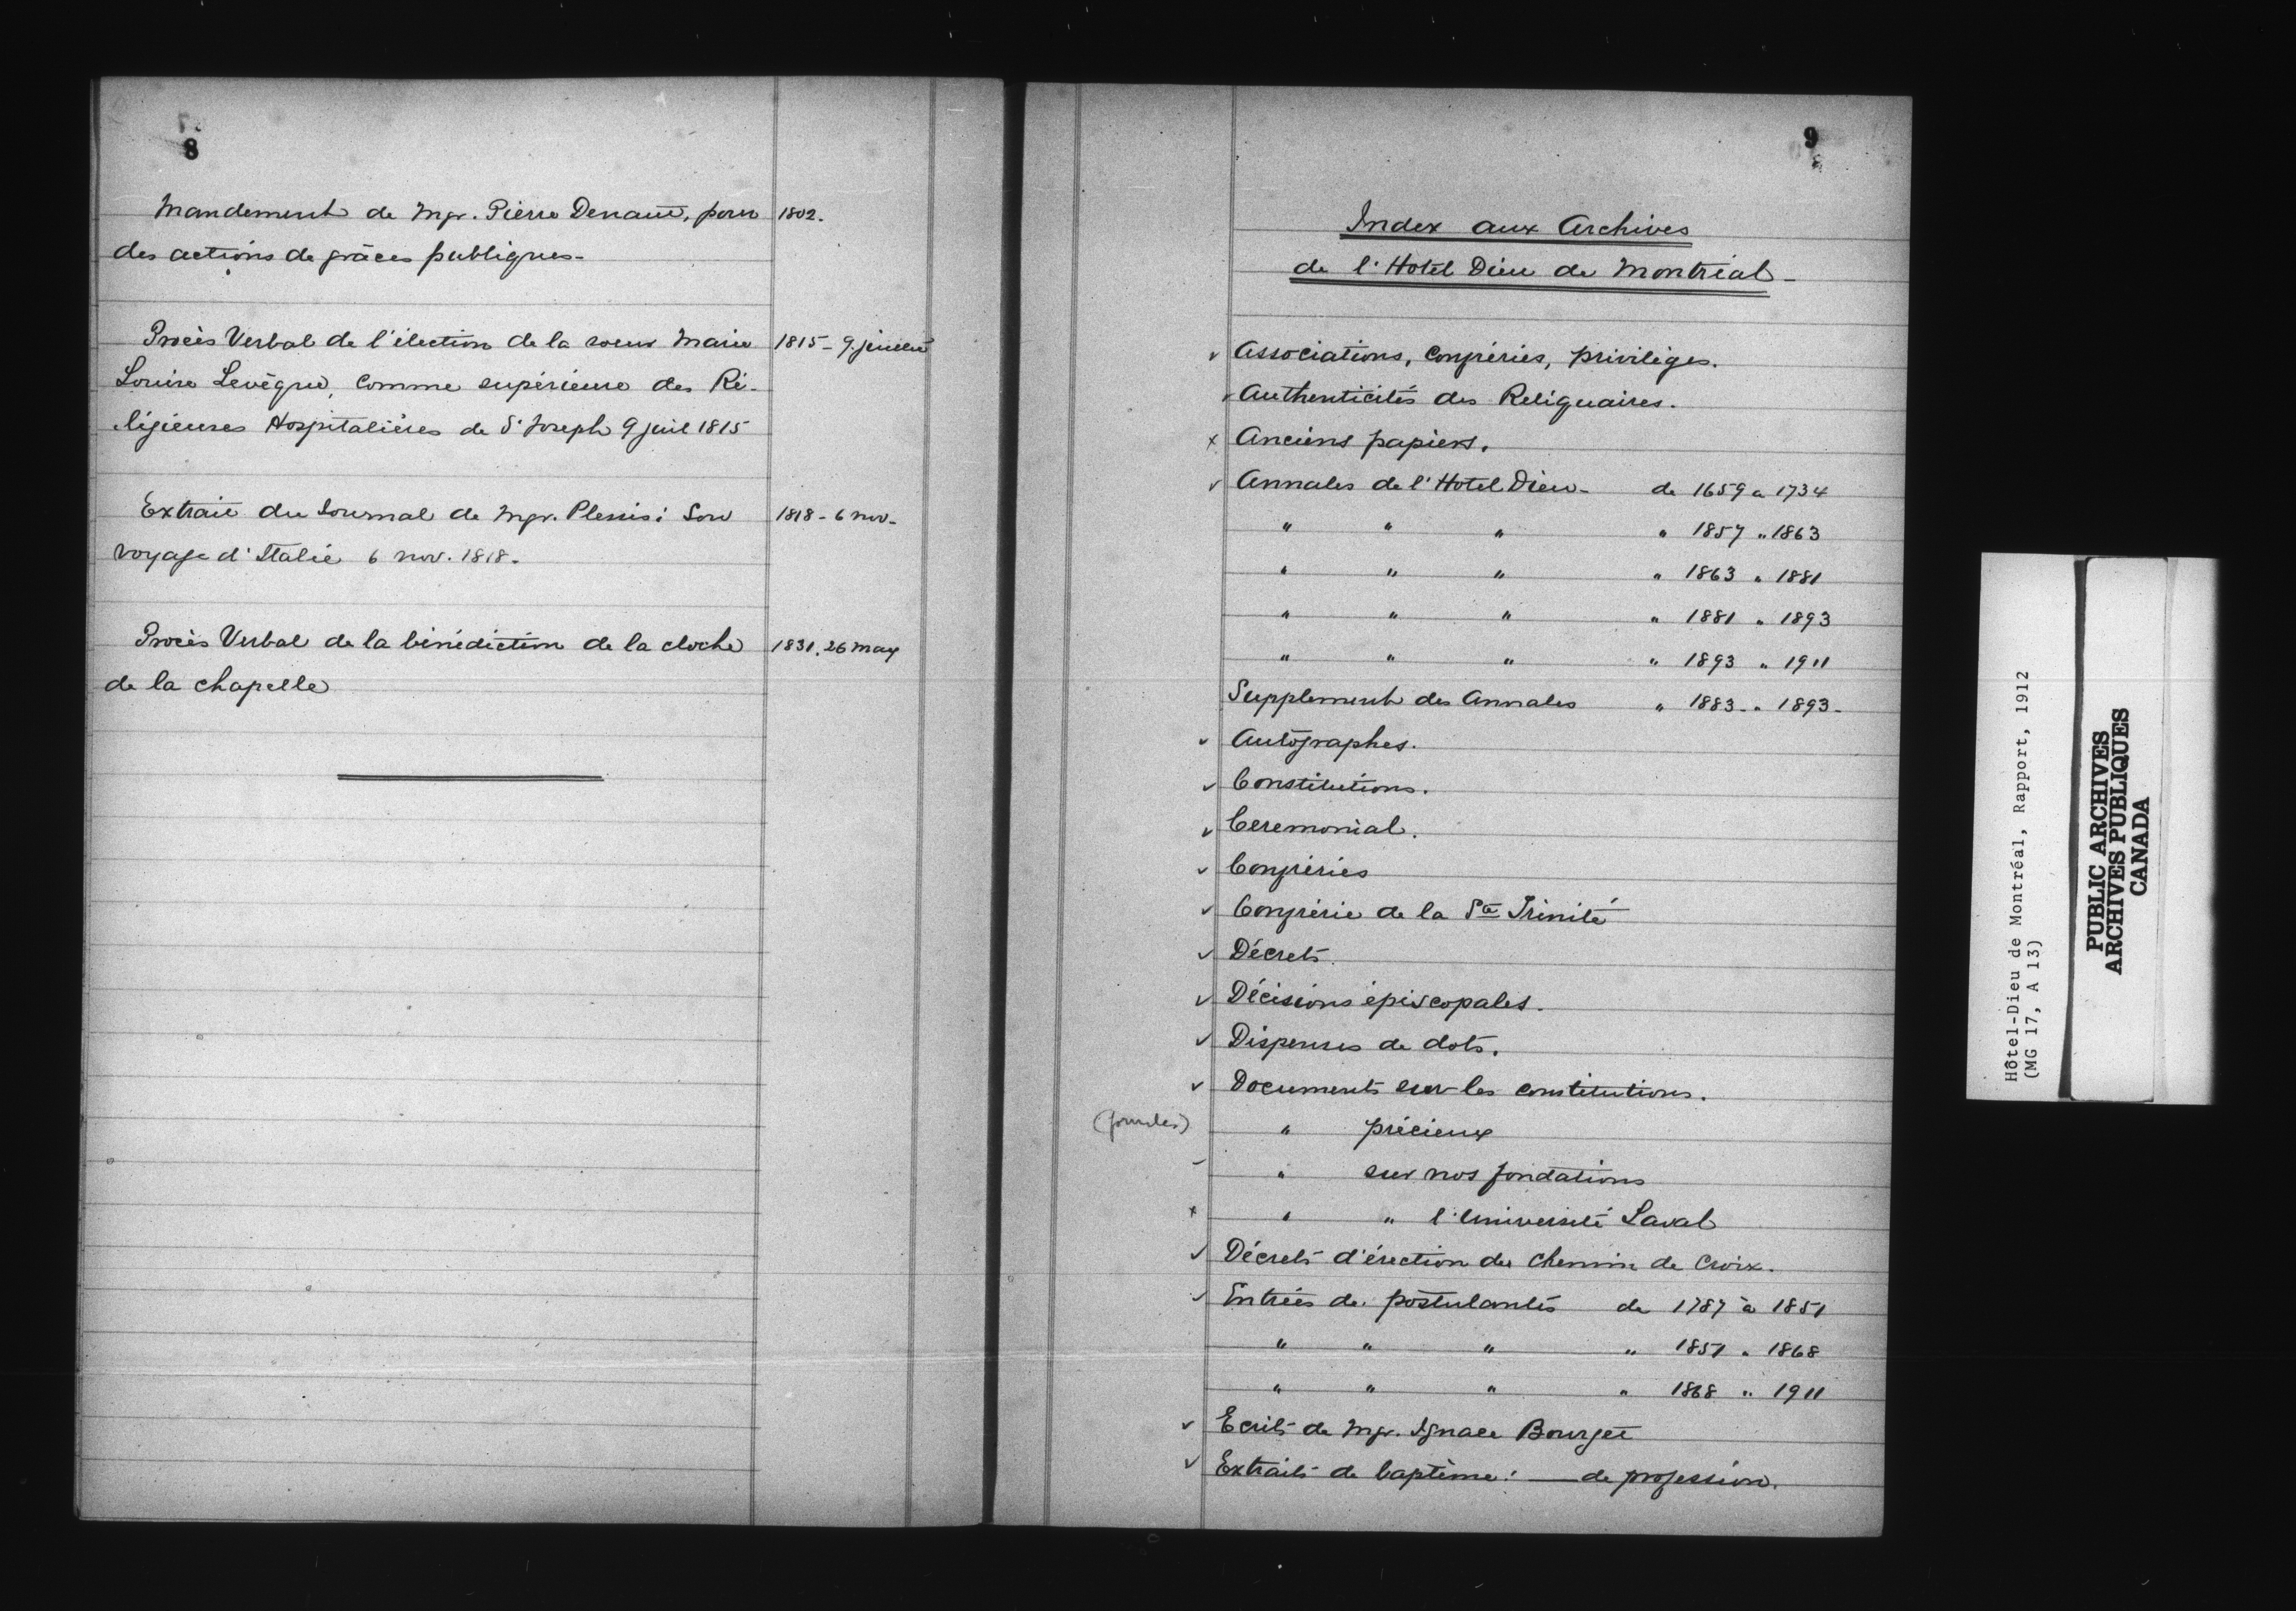 8
Mandement de Mgr. Pierre Denaut, pour 1802.
des actions de grâces publiques-
Procès Verbal de l'élection de la soeur Marie 1815- 9 juillet
Louise Levêque, comme supérieure des Ré-
ligieuses Hospitalières de St Joseph 9 juil 1815
Extrait du Journal de Mgr. Plessis: Son 1818- 6 nov-
voyage d'Italie 6 nov. 1818.
Procès Verbal de la bénédiction de la cloche 1831. 26 may
de la chapelle
9
Index aux Archives
de l'Hotel Dieu de Montréal-
v Associations, Confréries, privilèges.
v Authenticités des Reliquaires.
x Anciens papiers.
v Annales de l'Hotel Dieu- de 1659 a 1734
" " " " 1857 " 1863
" " " " 1863 " 1881
" " " " 1881 " 1893
" " " " 1893 " 1911
Supplement des Annales " 1883- " 1893-
v Autographes.
v Constitutions.
v Ceremonial.
v Confréries
v Confrérie de la Ste Trinité
v Décrets.
v Décisions épiscopales.
v Dispenses de dots.
v Documents sur les constitutions.
" précieux
" sur nos fondations
x " " l'Université Laval
v Décrets d'érection du Chemin de Croix.
v Entrées de postulantes de 1787 à 1851
" " " " 1851 " 1868
" " " " 1868 " 1911
v Ecrits de Mgr. Ignace Bourget
v Extraits de baptême: — de profession.
Hôtel-Dieu de Montréal, Rapport, 1912
(MG 17, A 13)
PUBLIC ARCHIVES
ARCHIVES PUBLIQUES
CANADA